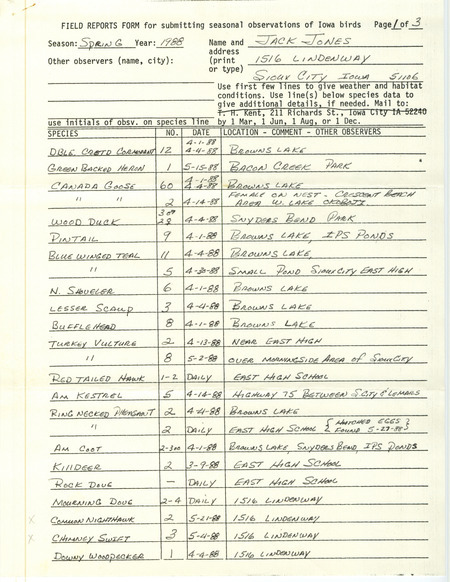 FIELD REPORTS FORM for submitting seasonal observations of Iowa birds Page 1 of 3
Season: SPRING Year: 1988 Name and JACK JONES
address
Other observers (name, city): (print 1516 LINDENWAY
or type)
SIOUX CITY IOWA 51106
Use first few lines to give weather and habitat
conditions. Use line(s) below species data to
give additional details, if needed. Mail to:
T. H. Kent, 211 Richards St., Iowa City IA 52240
use initials of obsv. on species line by 1 Mar, 1 Jun, 1 Aug, or 1 Dec.
SPECIES NO. DATE LOCATION - COMMENT - OTHER OBSERVERS
4-1-88
DBLE. CRSTD CORMORANT 12 4-4-88 BROWNS LAKE
GREEN BACKED HERON 1 5-15-88 BACON CREEK PARK
4-1-88
CANADA GOOSE 60 4-4-88 BROWNS LAKE
FEMALE ON NEST - CRESCENT BEACH
" " 2 4-14-88 AREA W. LAKE OKOBOJI.
WOOD DUCK 28 4-4-88 SNYDERS BEND PARK
PINTAIL 9 4-1-88 BROWNS LAKE, IPS PONDS
BLUE WINGED TEAL 11 4-4-88 BROWNS LAKE,
" 5 4-20-88 SMALL POND SIOUX CITY EAST HIGH
N. SHOVELER 6 4-1-88 BROWNS LAKE
LESSER SCAUP 3 4-4-88 BROWNS LAKE
BUFFLEHEAD 8 4-1-88 BROWNS LAKE
TURKEY VULTURE 2 4-13-88 NEAR EAST HIGH
" 8 5-2-88 OVER MORNINGSIDE AREA OF SIOUX CITY
RED TAILED HAWK 1-2 DAILY EAST HIGH SCHOOL
AM KESTREL 5 4-14-88 HIGHWAY 75 BETWEEN S. CITY & LEMARS
RING NECKED PHEASANT 2 4-4-88 BROWNS LAKE
2 DAILY EAST HIGH SCHOOL { HATCHED EGGS }
{ FOUND 5-27-88 }
AM COOT 2-300 4-1-88 BROWNS LAKE, SNYDERS BEND, IPS PONDS
KILLDEER 2 3-9-88 EAST HIGH SCHOOL
ROCK DOVE — DAILY EAST HIGH SCHOOL
MOURNING DOVE 2-4 DAILY 1516 LINDENWAY
X COMMON NIGHTHAWK 2 5-21-88 1516 LINDENWAY
X CHIMNEY SWIFT 3 5-4-88 1516 LINDENWAY
DOWNY WOODPECKER 1 4-4-88 1516 LINDENWAY